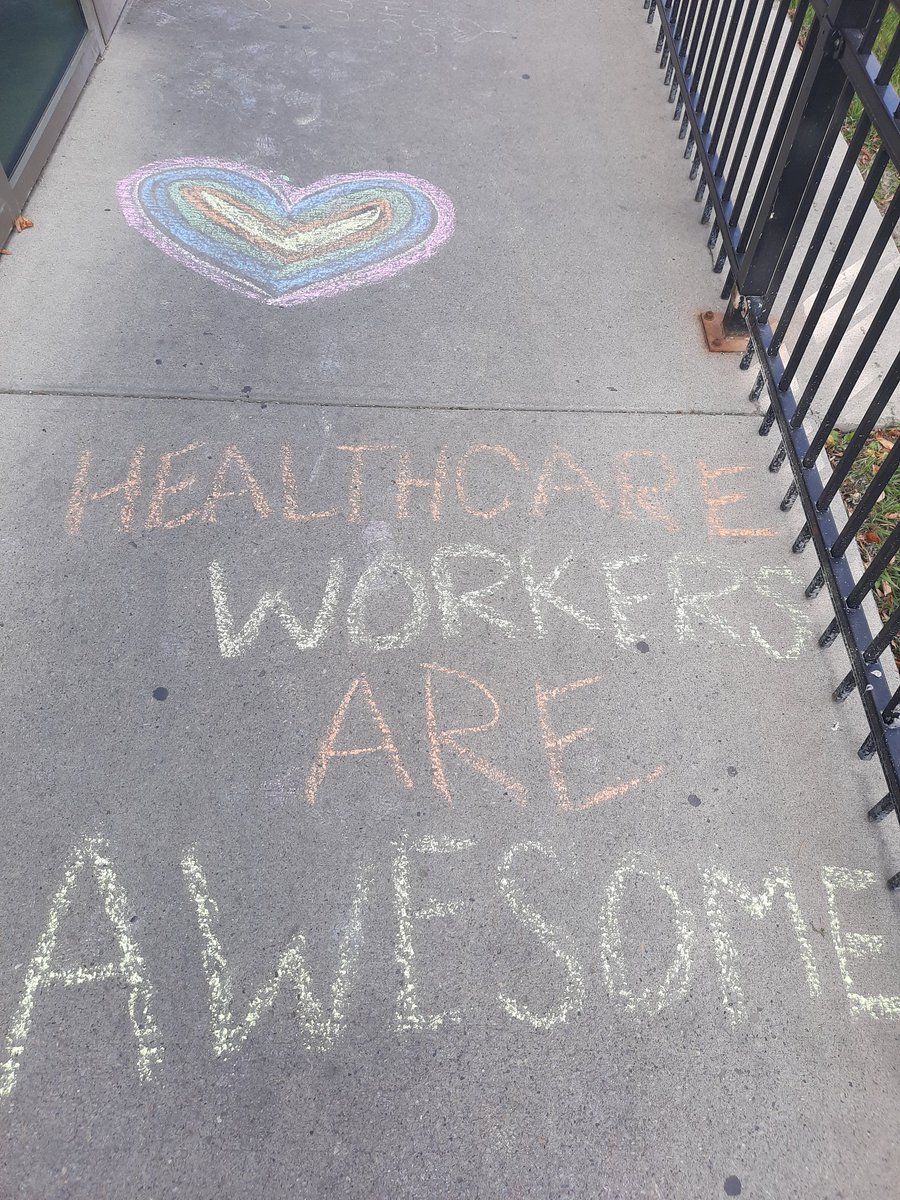 HEALTHCARE
WORKERS
ARE
AWESOME